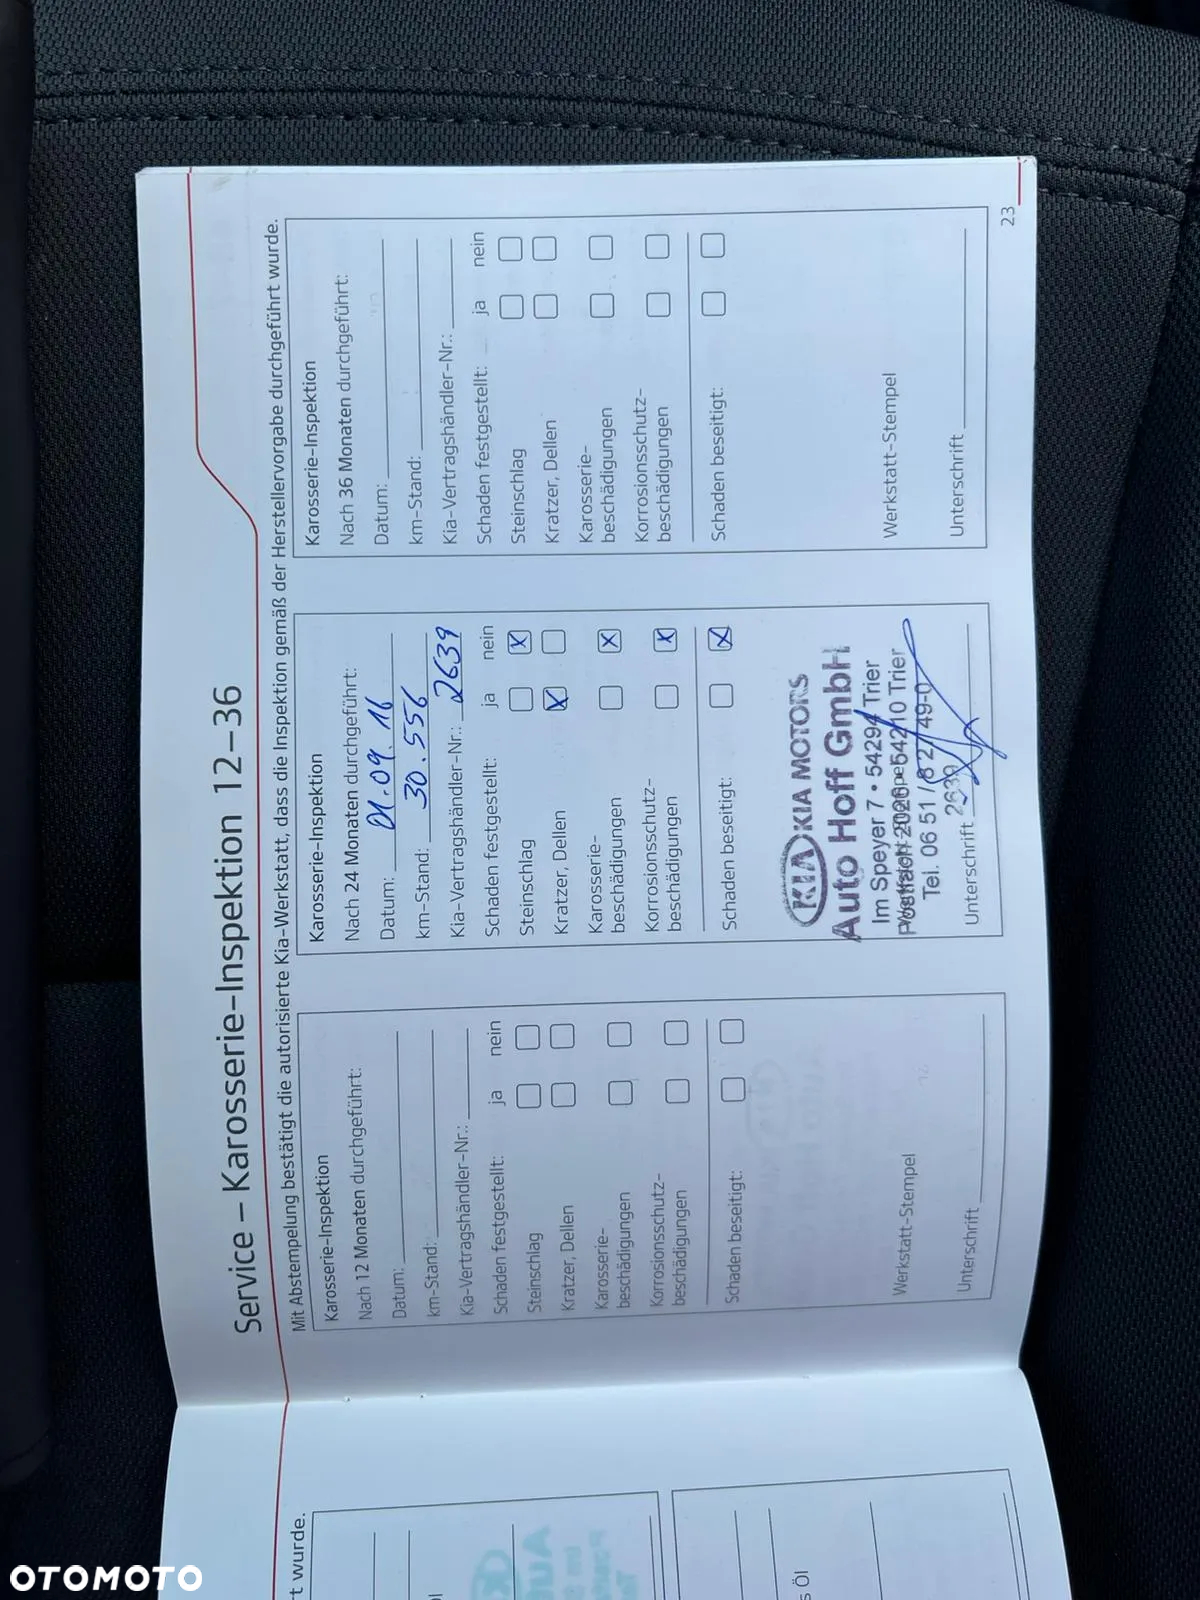 Service – Karosserie-Inspektion 12–36
Mit Abstempelung bestätigt die autorisierte Kia-Werkstatt, dass die Inspektion gemäß der Herstellervorgabe durchgeführt wurde.
Karosserie-Inspektion
Nach 12 Monaten durchgeführt:
Datum:
km-Stand:
Kia-Vertragshändler-Nr.:
Schaden festgestellt: ja nein
Steinschlag
Kratzer, Dellen
Karosserie-
beschädigungen
Korrosionsschutz-
beschädigungen
Schaden beseitigt:
Werkstatt-Stempel
Unterschrift
Karosserie-Inspektion
Nach 24 Monaten durchgeführt:
Datum: 01.09.16
km-Stand: 30.556
Kia-Vertragshändler-Nr.: 2639
Schaden festgestellt: ja nein
Steinschlag
Kratzer, Dellen
Karosserie-
beschädigungen
Korrosionsschutz-
beschädigungen
Schaden beseitigt:
KIA KIA MOTORS
Auto Hoff GmbH
Im Speyer 7 • 54294 Trier
Postfach 2026 • 54210 Trier
Werkstatt-Stempel
Tel. 06 51 / 8 27 49-0
2639
Unterschrift
Karosserie-Inspektion
Nach 36 Monaten durchgeführt:
Datum:
km-Stand:
Kia-Vertragshändler-Nr.:
Schaden festgestellt: ja nein
Steinschlag
Kratzer, Dellen
Karosserie-
beschädigungen
Korrosionsschutz-
beschädigungen
Schaden beseitigt:
Werkstatt-Stempel
Unterschrift
23
rt wurde.
s Öl
OTOMOTO